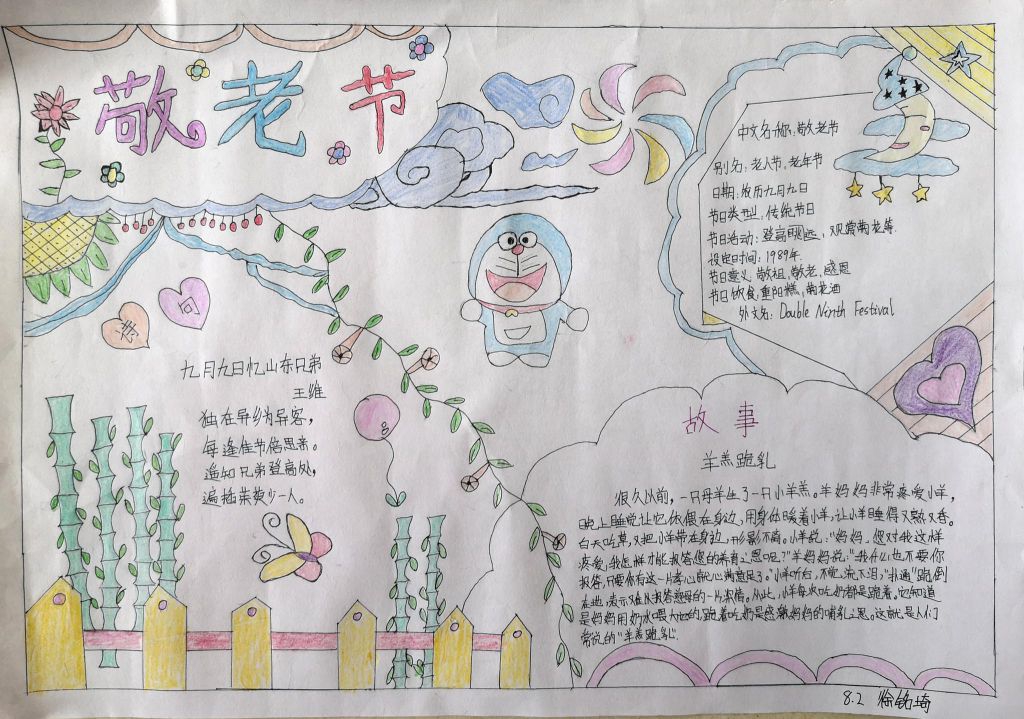 敬老节
诗
向
九月九日忆山东兄弟
王维
独在异乡为异客，
每逢佳节倍思亲。
遥知兄弟登高处，
遍插茱萸少一人。
中文名称：敬老节
别名：老人节，老年节
日期：农历九月九日
节日类型：传统节日
节日活动：登高眺远，观赏菊花等.
设定时间：1989年.
节日意义：敬祖，敬老，感恩
节日饮食，重阳糕，菊花酒
外文名：Double Ninth Festival
故事
羊羔跪乳
很久以前，一只母羊生了一只小羊羔。羊妈妈非常疼爱小羊，
晚上睡觉让它依偎在身边，用身体暖着小羊，让小羊睡得又熟又香。
白天吃草，又把小羊带在身边，形影不离。小羊说："妈妈，您对我这样
疼爱，我怎样才能报答您的养育之恩呢？"羊妈妈说："我什么也不要你
报答，只要你有这一片孝心就心满意足了。"小羊听后，不觉流下泪，"扑通"跪倒
在地，表示难以报答慈母的一片深情。从此，小羊每次吃奶都是跪着。它知道
是妈妈用奶水喂大它的，跪着吃奶是感激妈妈的哺乳之恩。这就是人们
常说的"羊羔跪乳"
8.2 徐铭琦